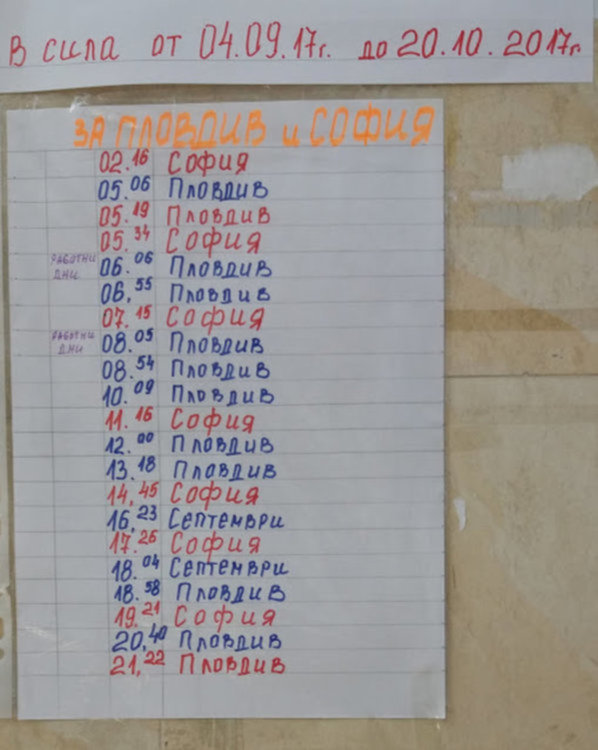 В сила от 04.09.17г. до 20.10.2017г.
ЗА ПЛОВДИВ и СОФИЯ
02.16 София
05.06 Пловдив
05.19 Пловдив
05.34 София
РАБОТНИ ДНИ 06.06 Пловдив
06,55 Пловдив
07.15 София
РАБОТНИ ДНИ 08.05 Пловдив
08.54 Пловдив
10.09 Пловдив
11.16 София
12.00 Пловдив
13.18 Пловдив
14,45 София
16,23 Септември
17.26 София
18.04 Септември
18.58 Пловдив
19.21 София
20,40 Пловдив
21,22 Пловдив